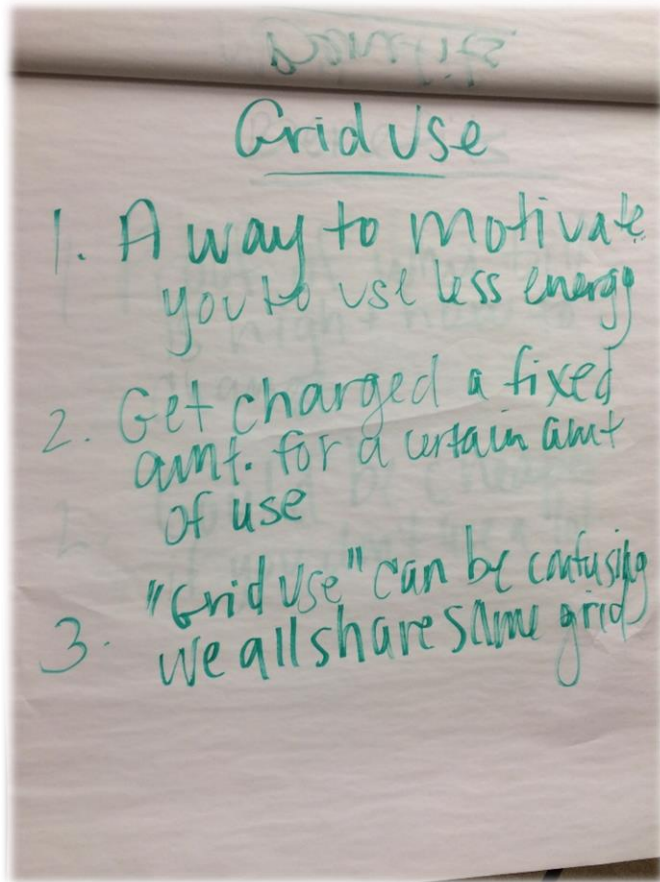 Grid Use
1. A way to motivate
you to use less energy
2. Get charged a fixed
amt. for a certain amt
of use
3. "Grid Use" can be confusing
we all share same grid